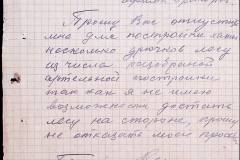 Прошу Вас отпустить
мне для постройки хаты
несколько дрючков лесу
из числа разобраной
артельной постройки
так как я не имею
возможности достать
лесу на стороне, прошу
не отказать моей прось